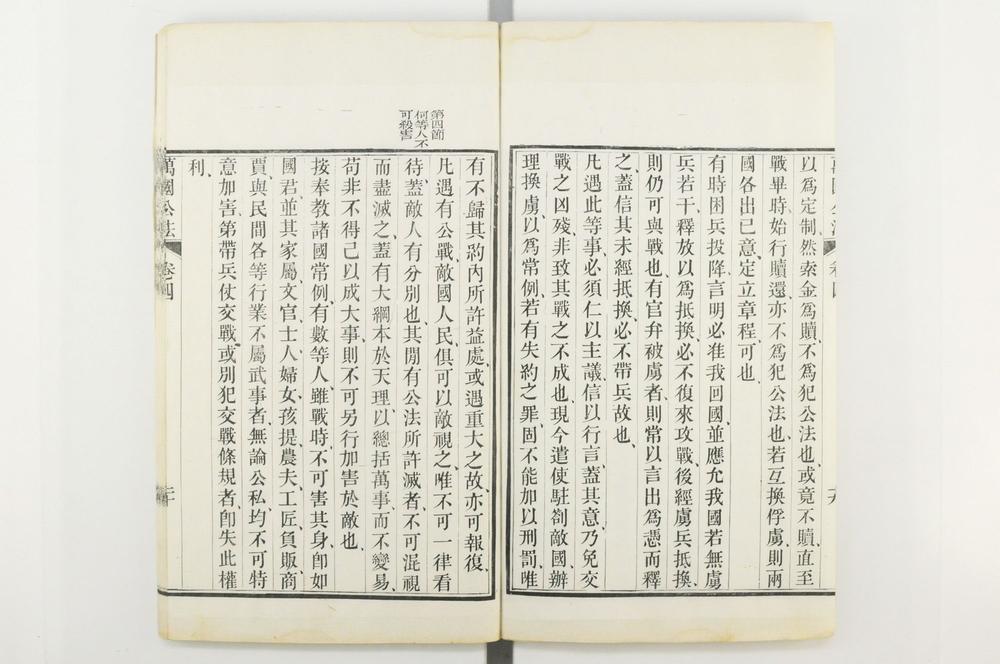 以爲定制然索金爲贖不爲犯公法也或竟不贖直至
戰畢時始行贖還亦不爲犯公法也若互換俘虜則兩
國各出己意定立章程可也
有時困兵投降言明必准我回國並應允我國若無虜
兵若干釋放以爲抵換必不復來攻戰後經虜兵抵換
則仍可與戰也有官弁被虜者則常以言出爲憑而釋
之蓋信其未經抵換必不帶兵故也
凡遇此等事必須仁以主議信以行言蓋其意乃免交
戰之凶殘非致其戰之不成也現今遣使駐劄敵國辦
理換虜以爲常例若有失約之罪固不能加以刑罰唯
第四節
何等人不
可殺害
有不歸其約內所許益處或遇重大之故亦可報復
凡遇有公戰敵國人民俱可以敵視之唯不可一律看
待蓋敵人有分別也其閒有公法所許滅者不可混視
而盡滅之蓋有大綱本於天理以總括萬事而不變易
苟非不得已以成大事則不可另行加害於敵也
按奉教諸國常例有數等人雖戰時不可害其身卽如
國君並其家屬文官士人婦女孩提農夫工匠負販商
賈與民間各等行業不屬武事者無論公私均不可特
意加害第帶兵仗交戰或別犯交戰條規者卽失此權
利
萬國公法
卷四